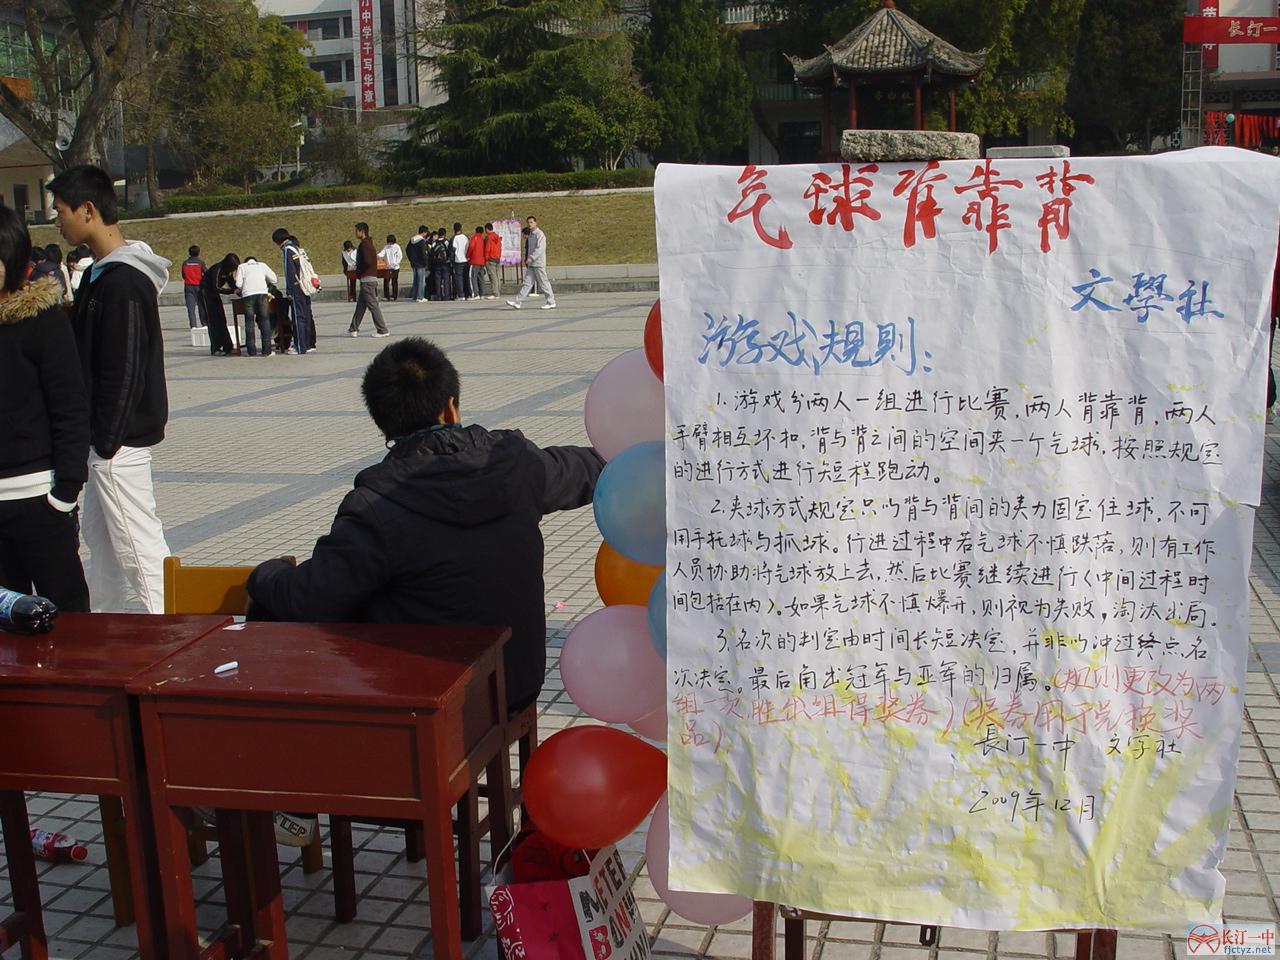 汀中学子写华章
长汀一
气球背靠背
文學社
游戏规则：
1. 游戏分两人一组进行比赛，两人背靠背，两人
手臂相互环扣，背与背之间的空间夹一个气球，按照规定
的进行方式进行短程跑动。
2. 夹球方式规定只以背与背间的夹力固定住球，不可
用手托球与抓球。行进过程中若气球不慎跌落，则有工作
人员协助将气球放上去，然后比赛继续进行（中间过程时
间包括在内）。如果气球不慎爆开，则视为失败，淘汰出局。
3. 名次的判定由时间长短决定，并非以冲过终点名
次决定。最后角出冠军与亚军的归属。（规则更改为两
组一次，胜出组得奖券）（奖券用于兑换奖
品）
長汀一中 文学社
2009年12月
METER
长汀一中
fjctyz.net